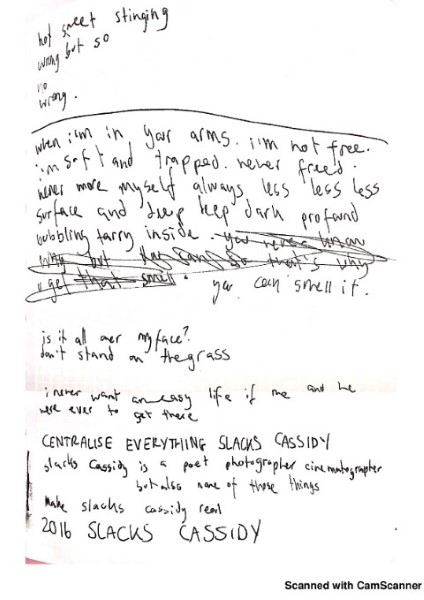 hot sweet stinging
wrong but so
no
wrong.
when i'm in your arms. i'm not free.
i'm soft and trapped. never freed.
never more myself always less less less
surface and deep deep dark profound
bubbling tarry inside. you never know
why but that's why
u get that smell. you can smell it.
is it all over my face?
don't stand on the grass
i never want an easy life if me and he
were ever to get there
CENTRALISE EVERYTHING SLACKS CASSIDY
slacks cassidy is a poet photographer cinematographer
but also none of those things
make slacks cassidy real
2016 SLACKS CASSIDY
Scanned with CamScanner